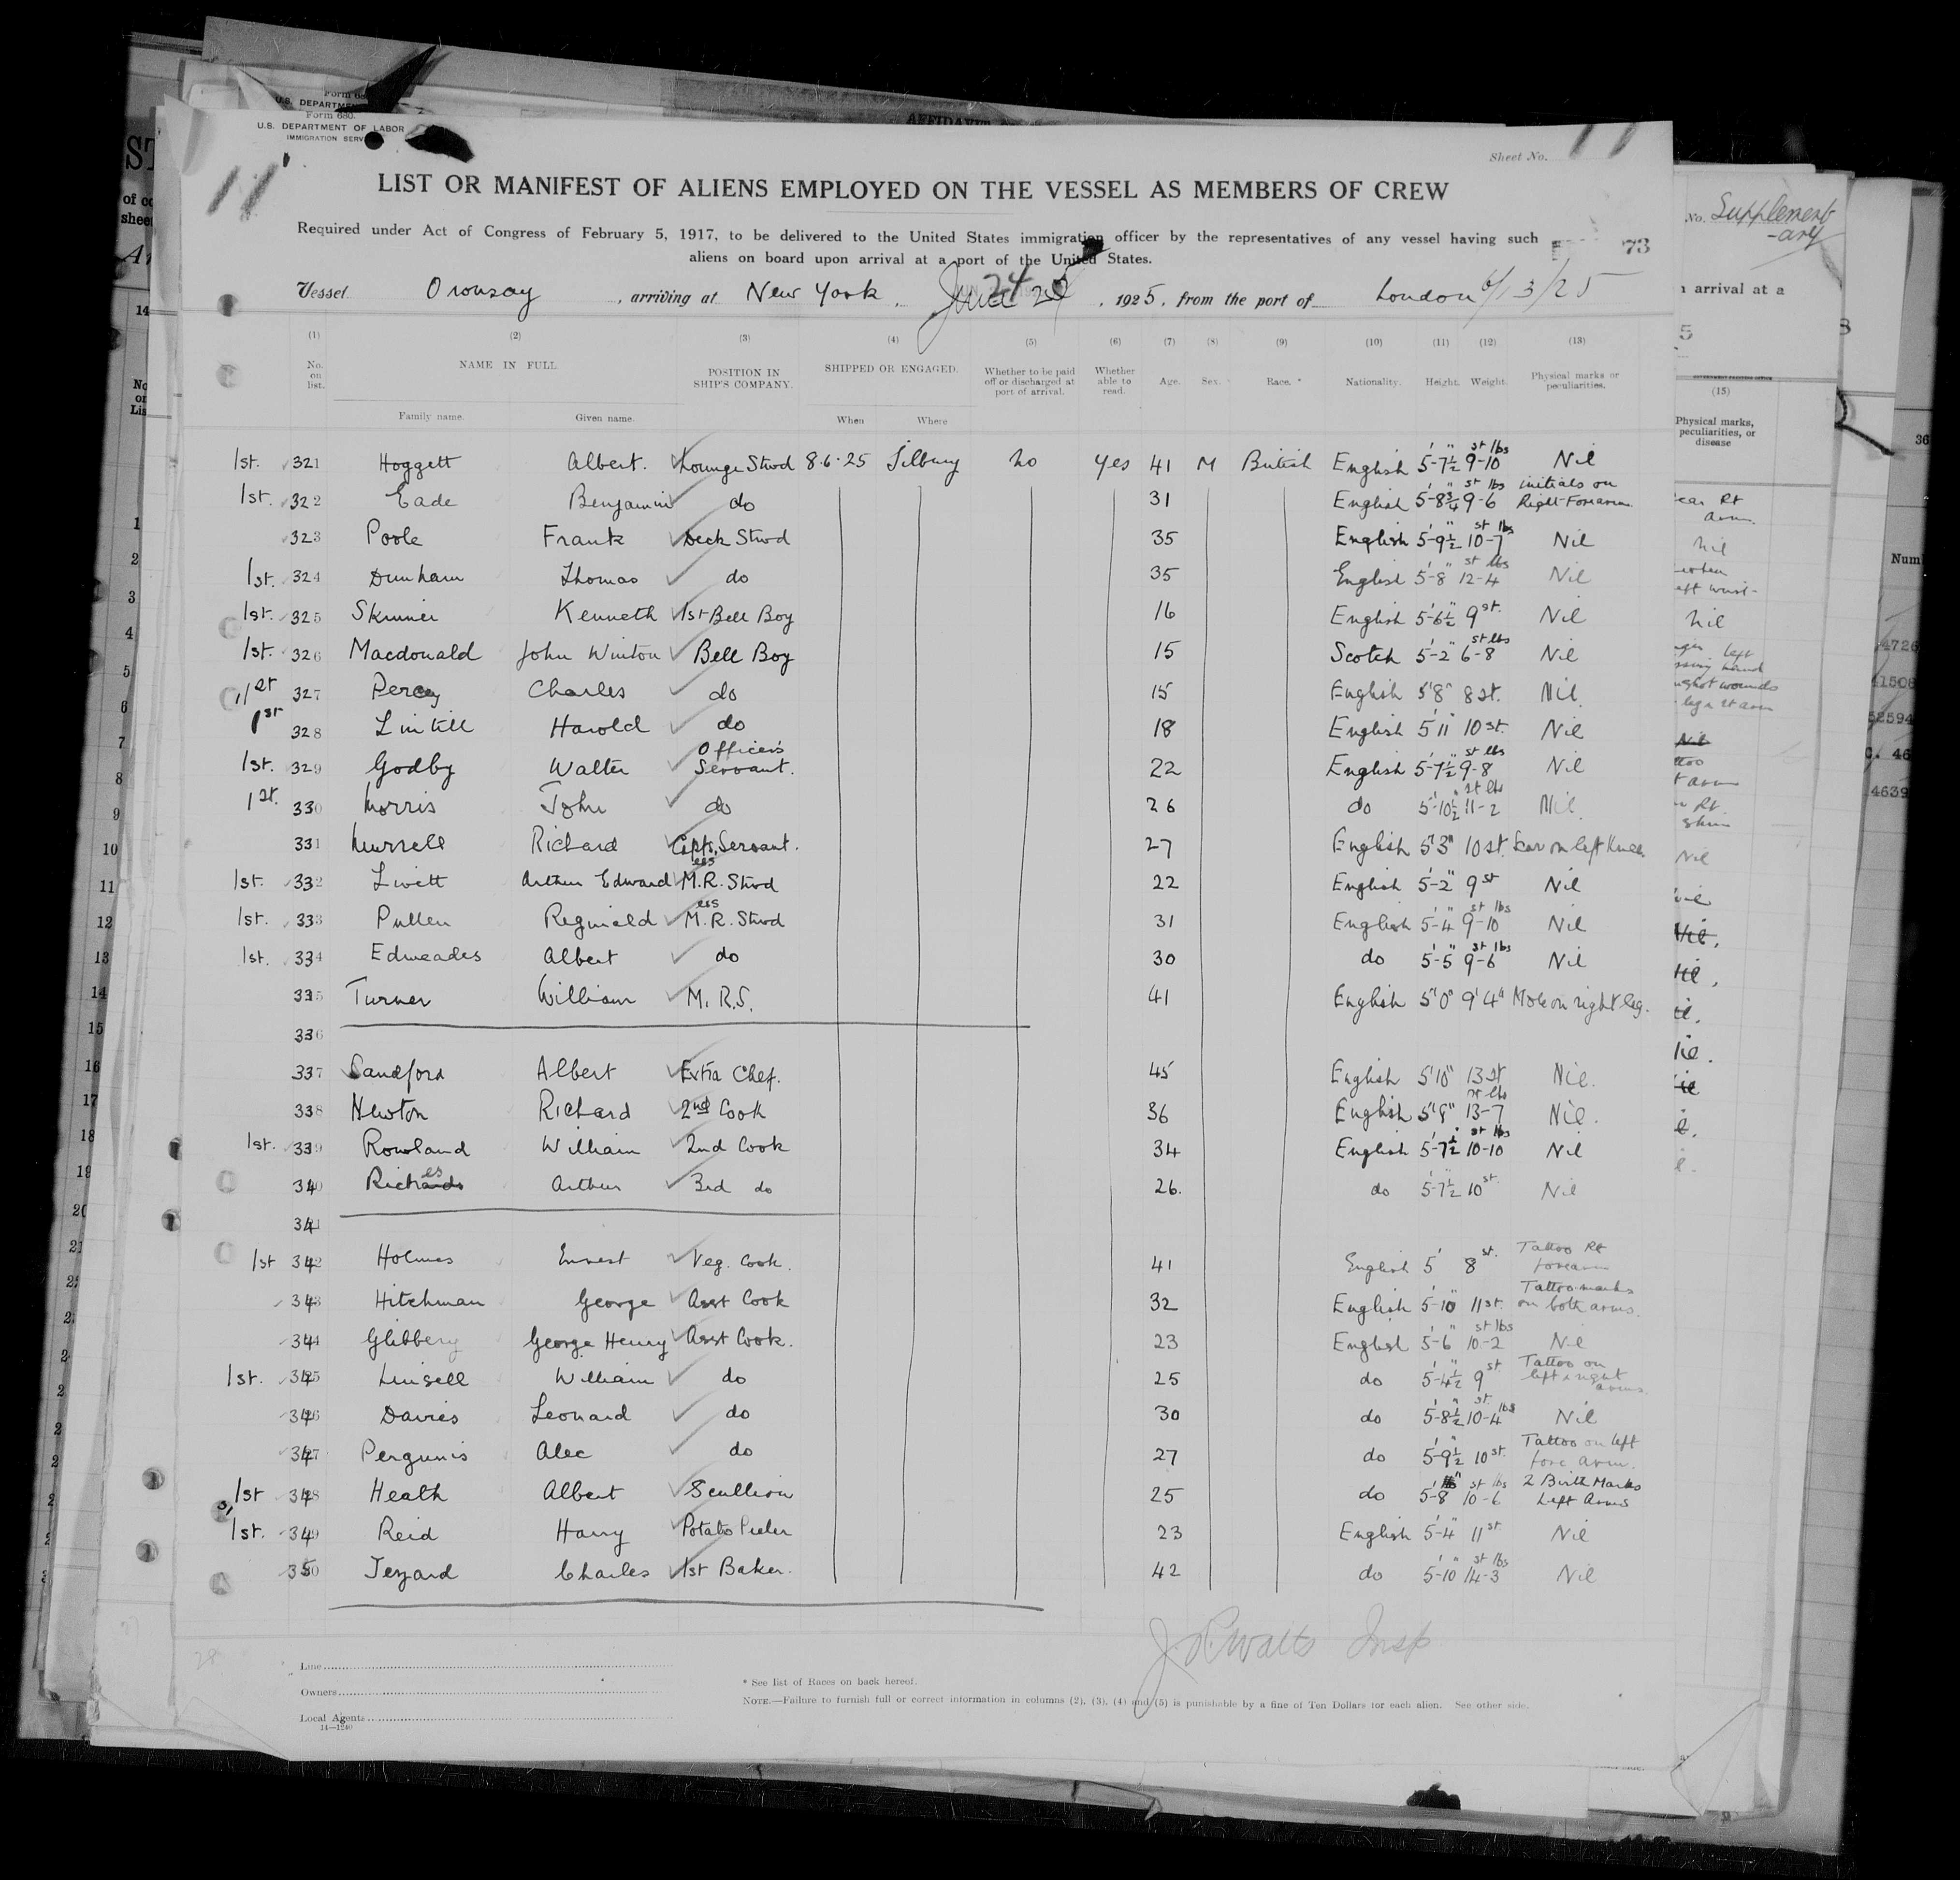 Form 680.
U.S. DEPARTMENT OF LABOR
IMMIGRATION SERV
11
Sheet No. 11
LIST OR MANIFEST OF ALIENS EMPLOYED ON THE VESSEL AS MEMBERS OF CREW
Required under Act of Congress of February 5, 1917, to be delivered to the United States immigration officer by the representatives of any vessel having such
aliens on board upon arrival at a port of the United States.
73
Vessel Oronsay, arriving at New York, June 24, 1925, from the port of London 6/13/25
(1) (2) (3) (4) (5) (6) (7) (8) (9) (10) (11) (12) (13)
No. on list. NAME IN FULL POSITION IN SHIP'S COMPANY. SHIPPED OR ENGAGED. Whether to be paid off or discharged at port of arrival. Whether able to read. Age. Sex. Race. * Nationality. Height. Weight. Physical marks or peculiarities.
Family name. Given name. When Where
1st. 321 Hoggett Albert. Lounge Stwd 8.6.25 Tilbury No Yes 41 M British English 5'-7½" 9-10 st lbs Nil
1st. 322 Eade Benjamin do 31 English 5'-8¾" 9-6 st lbs initials on Right Forearm
323 Poole Frank Deck Stwd 35 English 5'-9½" 10-7 st lbs Nil
1st. 324 Dunham Thomas do 35 English 5'-8" 12-4 st lbs Nil
1st. 325 Skinner Kenneth 1st Bell Boy 16 English 5'-6½" 9 st. Nil
1st. 326 Macdonald John Winton Bell Boy 15 Scotch 5'-2" 6-8 st lbs Nil
1st 327 Percy Charles do 15 English 5'8" 8 st. Nil.
1st 328 Lintill Harold do 18 English 5'11" 10 st. Nil
1st. 329 Godby Walter Officers Servant. 22 English 5'-7½" 9-8 st lbs Nil
1st. 330 Morris John do 26 do 5'-10½" 11-2 st lbs Nil.
331 Murrell Richard Capts Servant. 27 English 5'3" 10 st. Scar on left Knee.
1st. 332 Livett Arthur Edward M.R. Stwd 22 English 5'-2" 9 st Nil
1st. 333 Pullen Reginald M.R. Stwd 31 English 5'-4" 9-10 st lbs Nil
1st. 334 Edmeades Albert do 30 do 5'-5" 9-6 st lbs Nil
335 Turner William M.R.S. 41 English 5'0" 9'4" Mole on right leg.
336
337 Sandford Albert Extra Chef. 45 English 5'10" 13 st Nil.
338 Newton Richard 2nd Cook 36 English 5'9" 13-7 st lbs Nil.
1st. 339 Rowland William 2nd Cook 34 English 5'-7½" 10-10 st lbs Nil
340 Riches Arthur 3rd do 26. do 5'-7½" 10 st. Nil
341
1st 342 Holmes Ernest Veg. Cook. 41 English 5' 8 st. Tattoo Rt forearm
343 Hitchman George Asst Cook 32 English 5'-10" 11 st. Tattoo marks on both arms.
344 Glibbery George Henry Asst Cook. 23 English 5'-6" 10-2 st lbs Nil
1st. 345 Linsell William do 25 do 5'-4½" 9 st. Tattoo on left & right arms.
346 Davies Leonard do 30 do 5'-8½" 10-4 st. lbs Nil
347 Pergunis Alec do 27 do 5'-9½" 10 st. Tattoo on left fore arm.
1st 348 Heath Albert Scullion 25 do 5'-8" 10-6 st lbs 2 Birth Marks Left Arms
1st. 349 Reid Harry Potato Peeler 23 English 5'-4" 11 st. Nil
350 Jezard Charles 1st Baker. 42 do 5'-10" 14-3 st lbs Nil
J R Watts Insp
Line
Owners
Local Agents
14—1240
* See list of Races on back hereof.
NOTE.—Failure to furnish full or correct information in columns (2), (3), (4) and (5) is punishable by a fine of Ten Dollars for each alien. See other side.
No. Supplement-ary
arrival at a
(15)
Physical marks, peculiarities, or disease